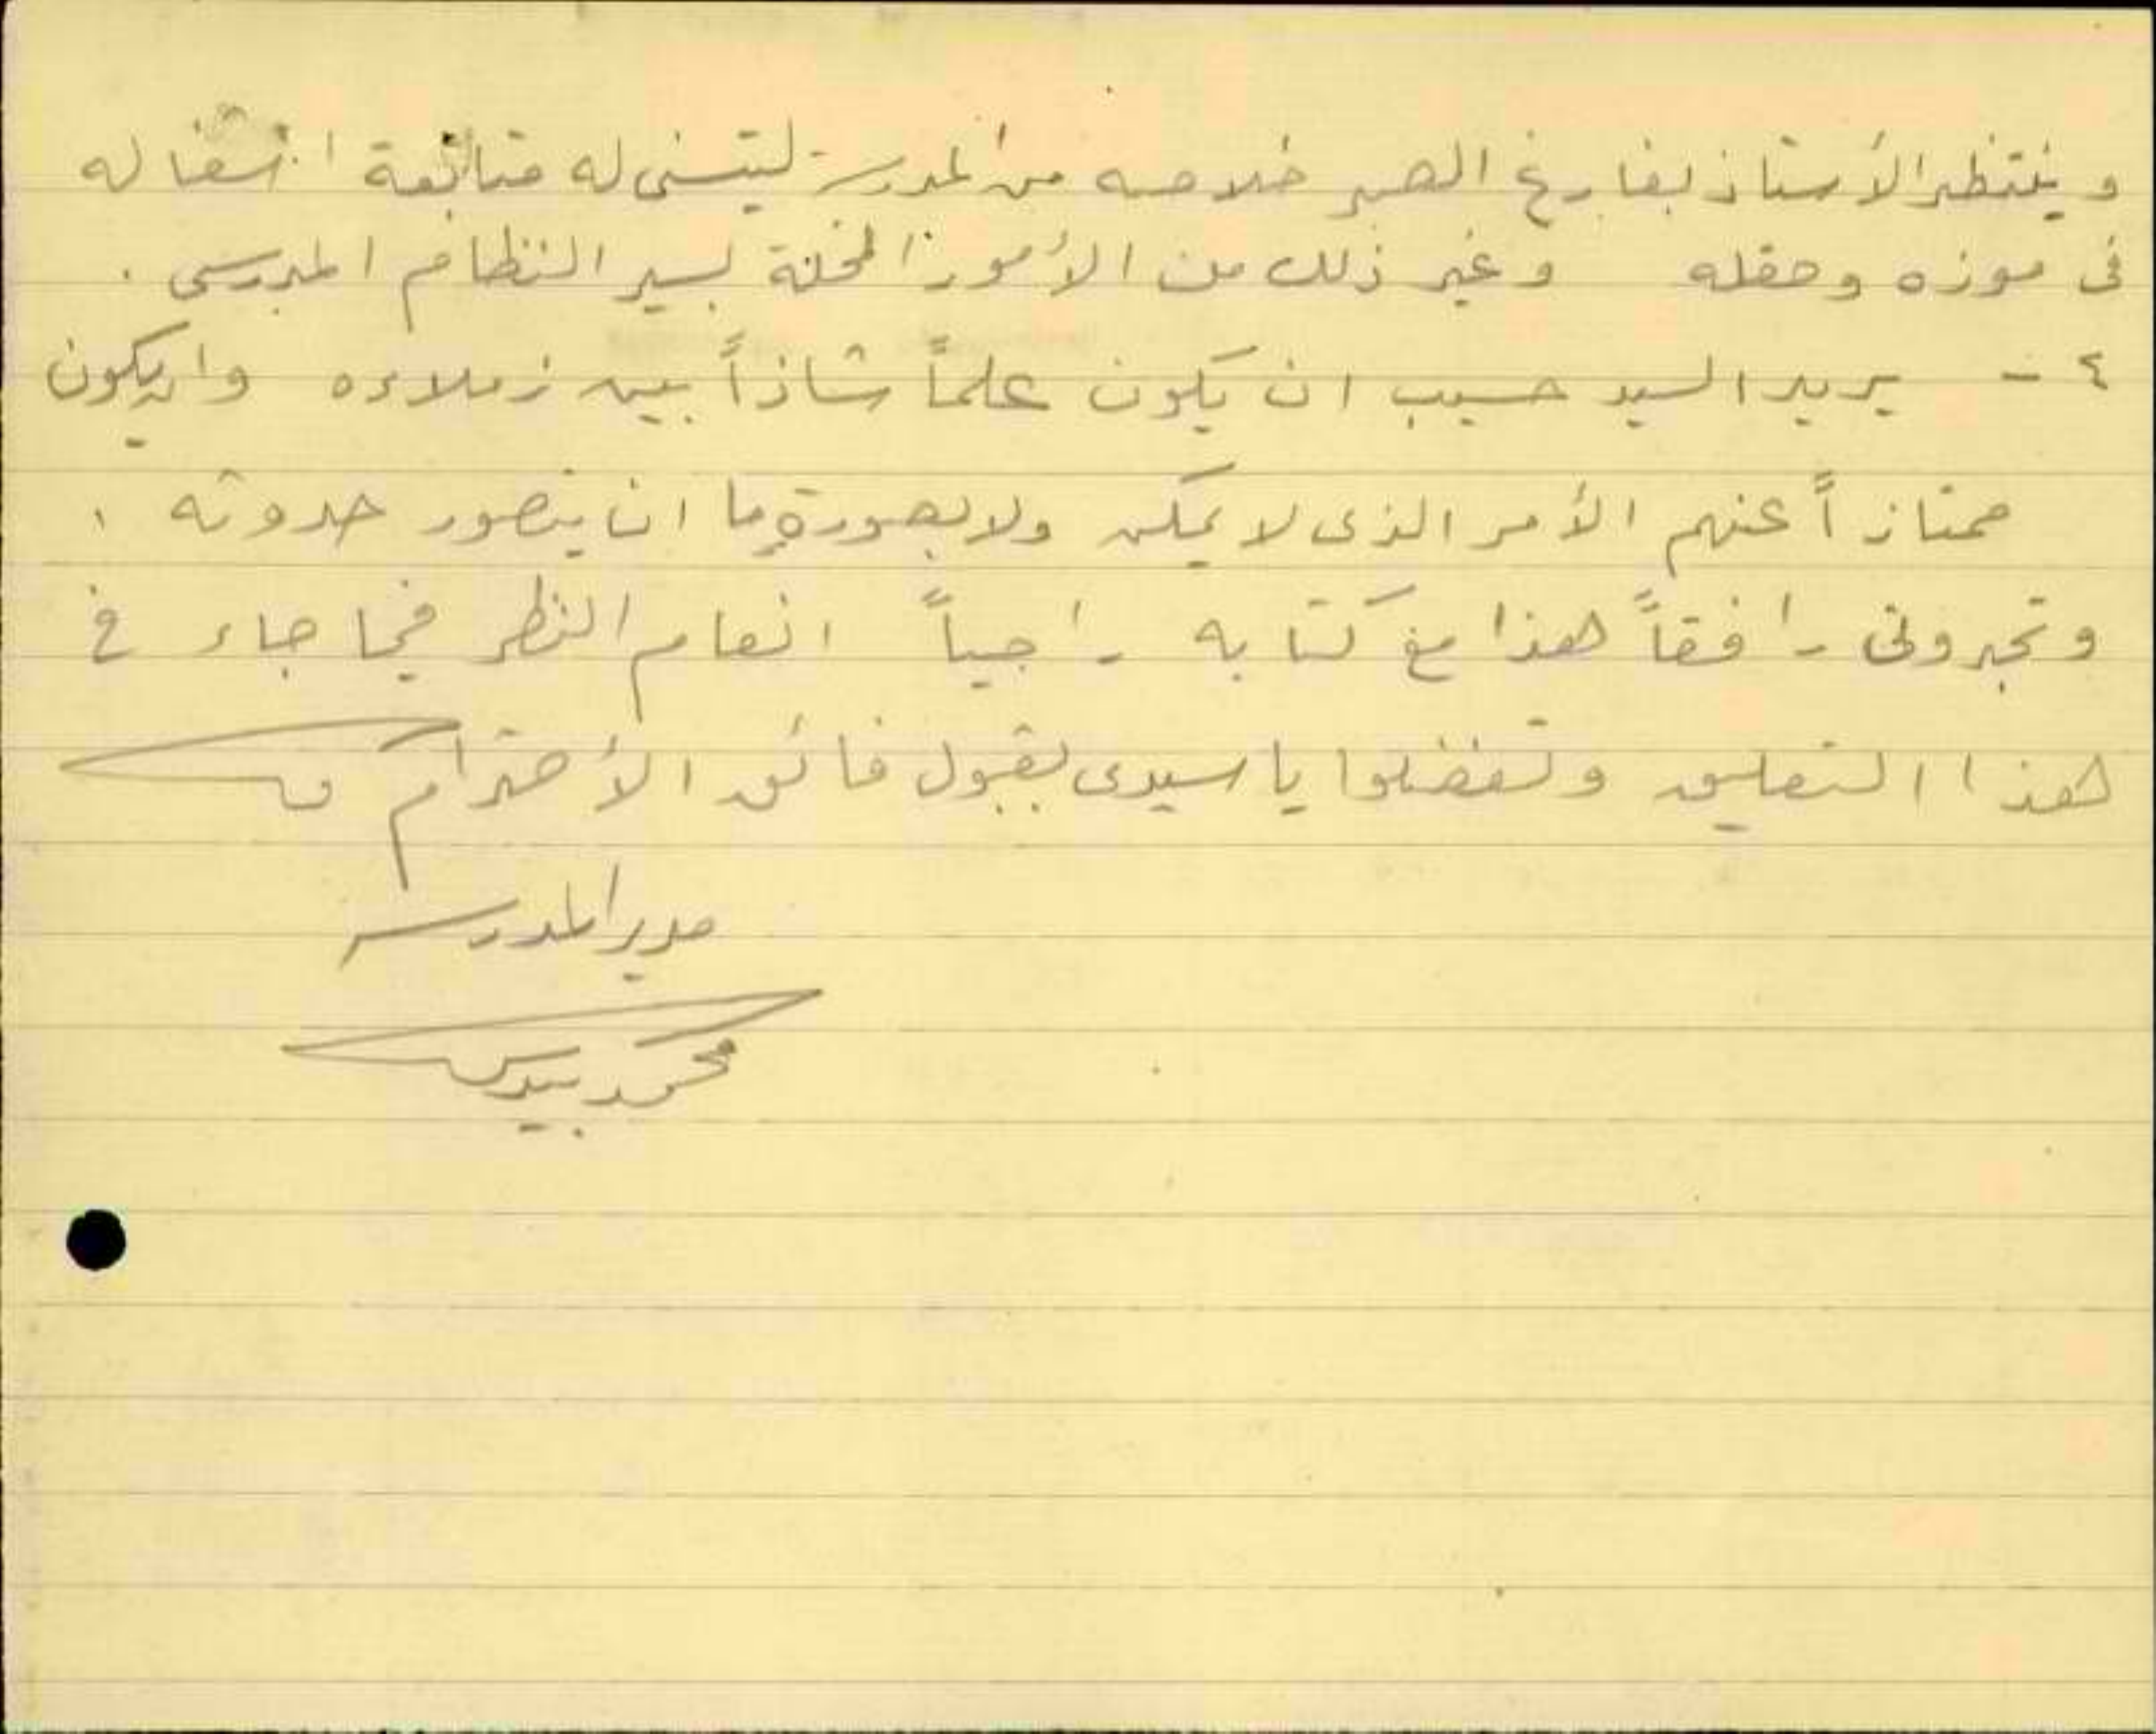 وينتظر الأستاذ بفارغ الصبر خلاصه من المدرسة ليتسنى له متابعة اشغاله
في موزه وحقله وغير ذلك من الأمور المخلة بسير النظام المدرسي .
٤ - يريد السيد حسيب ان يكون علماً شاذاً بين زملاءه وان يكون
ممتازاً عنهم الأمر الذى لا يمكن ولا بصورةٍ ما ان يتصور حدوثه ،
وتجدونى رافقاً هذا مع كتابه راجياً انعام النظر فيما جاء في
هذا التعليق وتفضلوا يا سيدى بقبول فائق الأحترام
مدير المدرسة
محمد بيدس